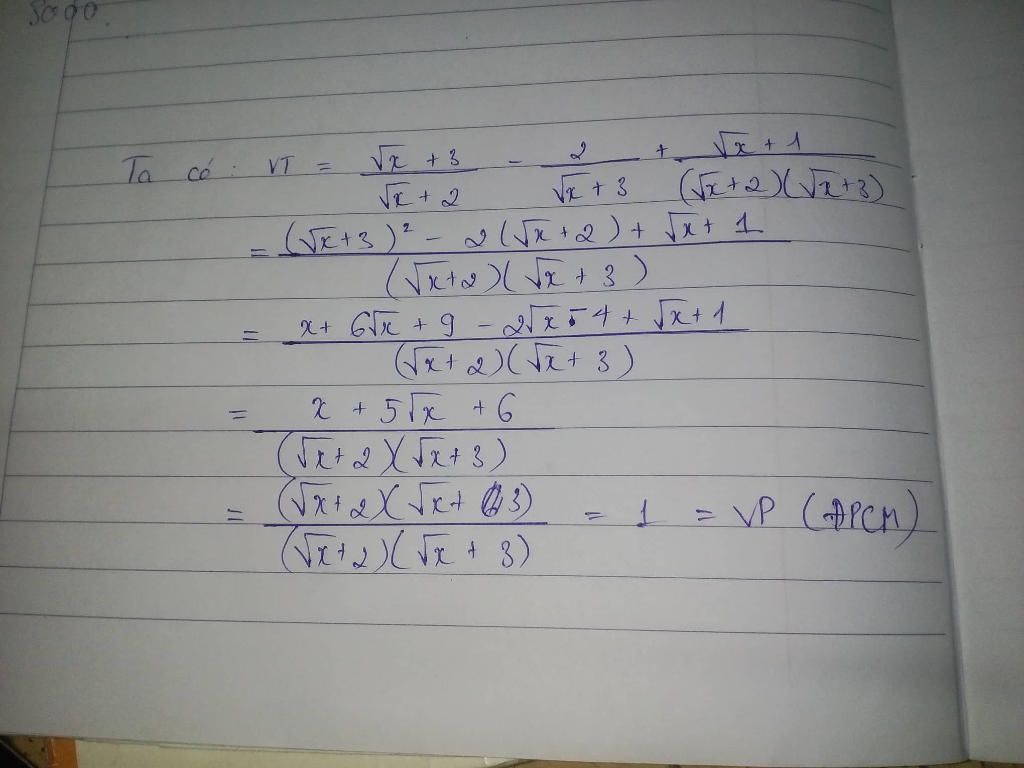 Ta có : VT = (√x + 3)/(√x + 2) - 2/(√x + 3) + (√x + 1)/((√x+2)(√x+3))
= ((√x+3)² - 2(√x+2) + √x + 1)/((√x+2)(√x + 3))
= (x + 6√x + 9 - 2√x - 4 + √x + 1)/((√x + 2)(√x + 3))
= (x + 5√x + 6)/((√x + 2)(√x + 3))
= ((√x+2)(√x + 3))/((√x+2)(√x + 3)) = 1 = VP (ĐPCM)